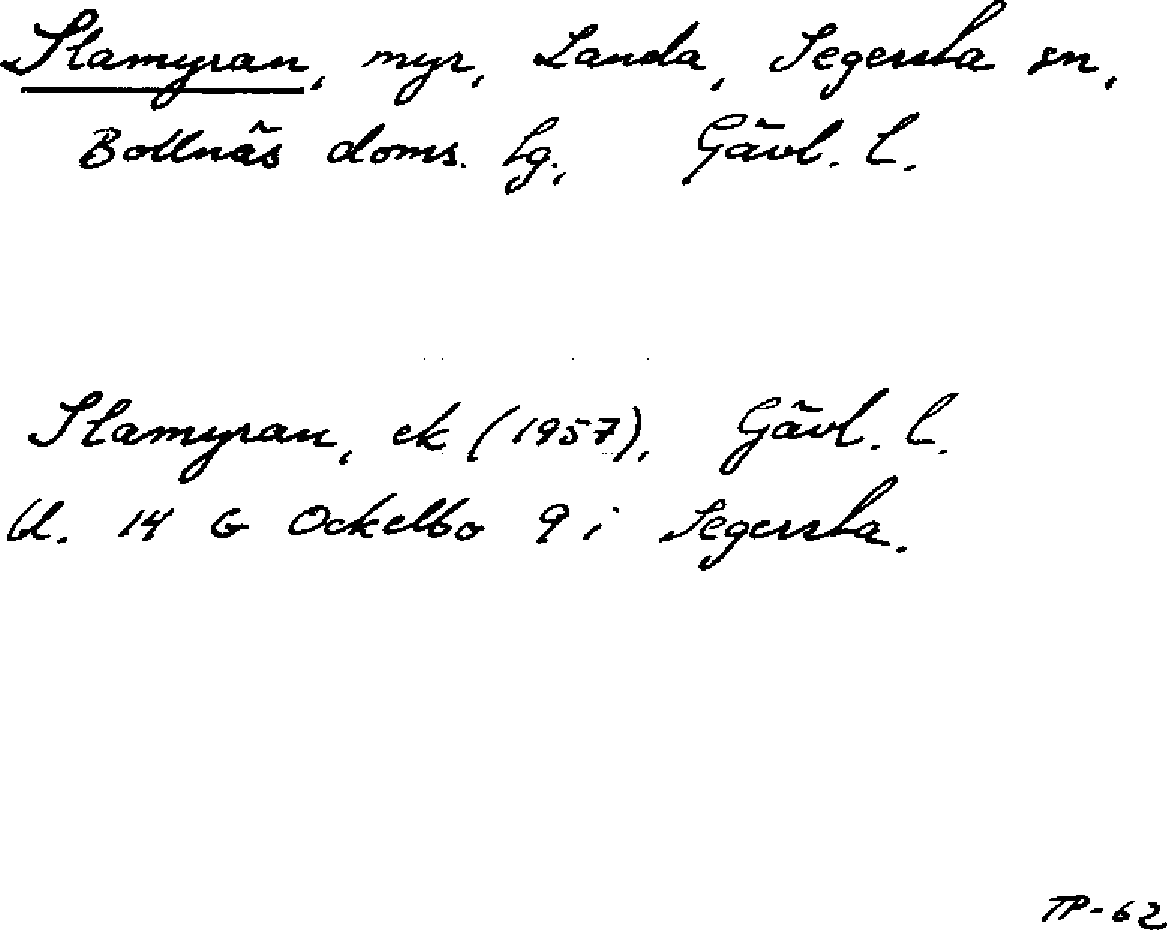 Slamyran, myr, Landa, Segersta sn,
Bollnäs doms. lg., Gävl. l.
Slamyran, ek (1957), Gävl. l.
bl. 14 G Ockelbo 9 i Segersta.
TP-62